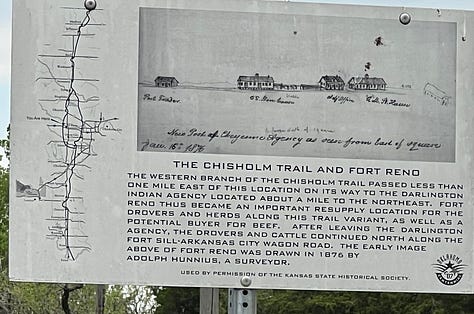 Post Trader
New Post of Cheyenne Agency as seen from East of square
Jan. 16th 1876
THE CHISHOLM TRAIL AND FORT RENO
THE WESTERN BRANCH OF THE CHISHOLM TRAIL PASSED LESS THAN
ONE MILE EAST OF THIS LOCATION ON ITS WAY TO THE DARLINGTON
INDIAN AGENCY LOCATED ABOUT A MILE TO THE NORTHEAST. FORT
RENO THUS BECAME AN IMPORTANT RESUPPLY LOCATION FOR THE
DROVERS AND HERDS ALONG THIS TRAIL VARIANT, AS WELL AS A
POTENTIAL BUYER FOR BEEF. AFTER LEAVING THE DARLINGTON
AGENCY, THE DROVERS AND CATTLE CONTINUED NORTH ALONG THE
FORT SILL-ARKANSAS CITY WAGON ROAD. THE EARLY IMAGE
ABOVE OF FORT RENO WAS DRAWN IN 1876 BY
ADOLPH HUNNIUS, A SURVEYOR.
USED BY PERMISSION OF THE KANSAS STATE HISTORICAL SOCIETY.
OKLAHOMA
07